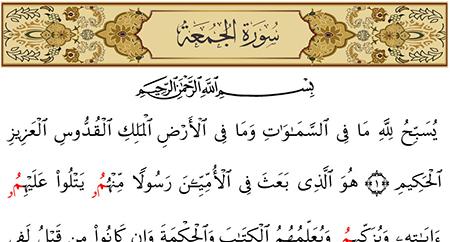 سُورَةُ الجُمُعَةِ
بِسْمِ اللَّهِ الرَّحْمَٰنِ الرَّحِيمِ
يُسَبِّحُ لِلَّهِ مَا فِى السَّمَٰوَٰتِ وَمَا فِى الْأَرْضِ الْمَلِكِ الْقُدُّوسِ الْعَزِيزِ
الْحَكِيمِ ۝١ هُوَ الَّذِى بَعَثَ فِى الْأُمِّيِّـۧنَ رَسُولًا مِّنْهُمُۥ يَتْلُوا۟ عَلَيْهِمُۥ
ءَايَٰتِهِۦ وَيُزَكِّيهِمُۥ وَيُعَلِّمُهُمُ الْكِتَٰبَ وَالْحِكْمَةَ وَإِن كَانُوا۟ مِن قَبْلُ لَفِى